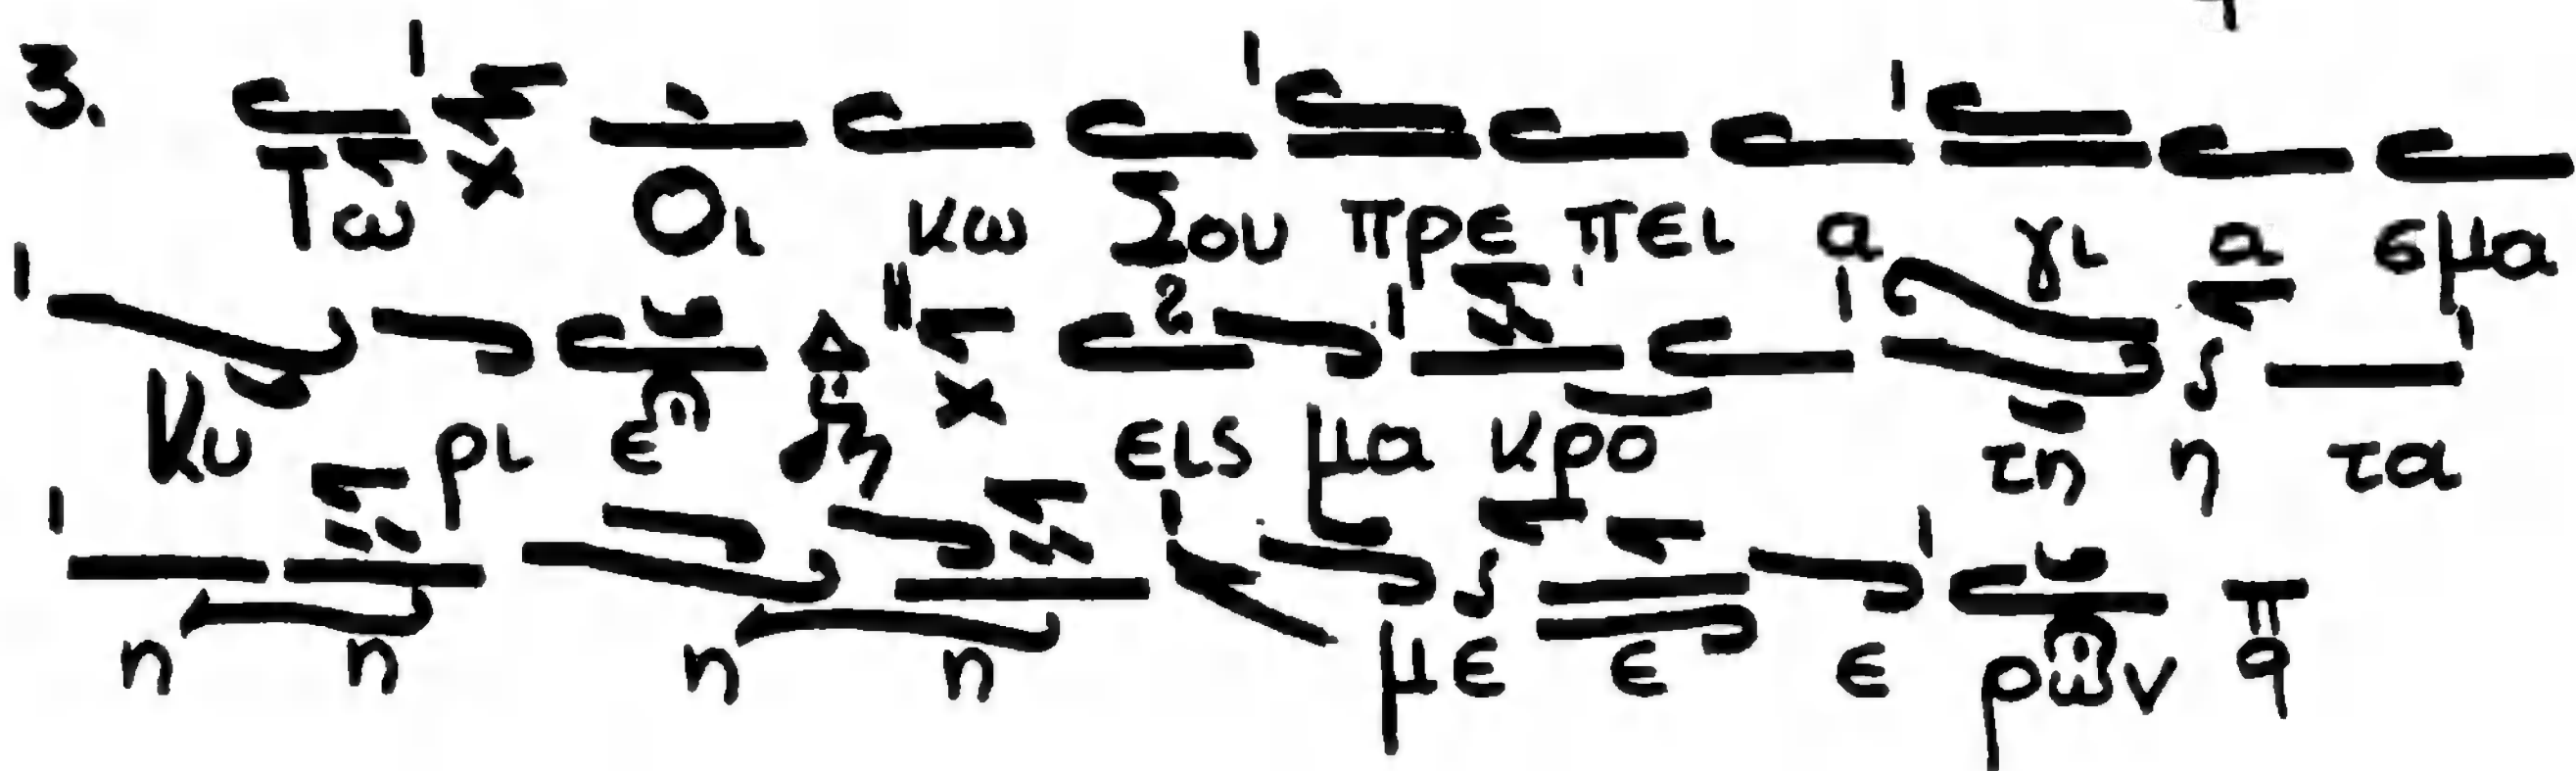 3. Τω Οι κω Σου πρε πει α γι α σμα
Κυ ρι ε εις μα κρο τη η τα
η η η η με ε ε ρων π q